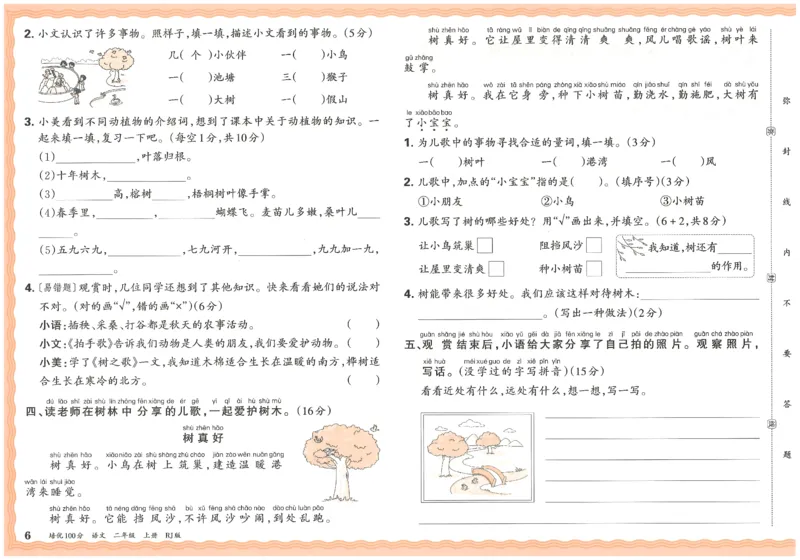 2. 小文认识了许多事物。照样子,填一填,描述小文看到的事物。(5分)
几( 个 )小伙伴 一( )小鸟
一( )池塘 三( )猴子
一( )大树 一( )假山
3. 小美看到不同动植物的介绍词,想到了课本中关于动植物的知识。一
起来填一填,复习一下吧。(每空1分,共10分)
(1)____________,叶落归根。
(2)十年树木,____________。
(3)________高,榕树______,梧桐树叶像手掌。
(4)春季里,________,________蝴蝶飞。麦苗儿多嫩,桑叶儿____
______。
(5)五九六九,________,七九河开,________,九九加一九,
____________。
4. [易错题]观赏时,几位同学还想到了其他知识。快来看看她们的说法对
不对。(对的画“√”,错的画“×”)(6分)
小语:插秧、采桑、打谷都是秋天的农事活动。 ( )
小文:《拍手歌》告诉我们动物是人类的朋友,我们要爱护动物。 ( )
小美:学了《树之歌》一文,我知道木棉适合生长在温暖的南方,桦树适
合生长在寒冷的北方。 ( )
dú lǎo shī zài shù lín zhōng fēn xiǎng de ér gē yì qǐ ài hù shù mù
四、读老师在树林中分享的儿歌,一起爱护树木。(16分)
shù zhēn hǎo
树真好
shù zhēn hǎo xiǎo niǎo zài shù shàng zhù cháo jiàn zào wēn nuǎn gǎng
树真好。小鸟在树上筑巢,建造温暖港
wān lái shuì jiào
湾来睡觉。
shù zhēn hǎo tā néng dǎng fēng shā bù xǔ fēng shā chǎo nào dào chù luàn pǎo
树真好。它能挡风沙,不许风沙吵闹,到处乱跑。
6 培优100分 语文 二年级 上册 RJ版
shù zhēn hǎo tā ràng wū lǐ biàn de qīng qīng shuǎng shuǎng fēng ér chàng gē yáo shù yè lái
树真好。它让屋里变得清清爽爽,风儿唱歌谣,树叶来
gǔ zhǎng
鼓掌。
shù zhēn hǎo wǒ zài tā shēn páng zhòng xià xiǎo shù miáo qín jiāo shuǐ qín shī féi dà shù yǒu
树真好。我在它身旁,种下小树苗,勤浇水,勤施肥,大树有
le xiǎo bǎo bao
了小宝宝。
1. 为儿歌中的事物寻找合适的量词,填一填。(3分)
一( )树叶 一( )港湾 一( )风
2. 儿歌中,加点的“小宝宝”指的是( )。(填序号)(3分)
①小朋友 ②小鸟 ③小树苗
3. 儿歌写了树的哪些好处?用“√”画出来,并填空。(6+2,共8分)
让小鸟筑巢□ 阻挡风沙□ 我知道,树还有______
让屋里变清爽□ 种小树苗□ ____________的作用。
4. 树能带来很多好处。我们应该这样对待树木:____________
____________。(写出一种做法)(2分)
guān shǎng jié shù hòu xiǎo yǔ gěi dà jiā fēn xiǎng le zì jǐ pāi de zhào piàn guān chá zhào piàn
五、观赏结束后,小语给大家分享了自己拍的照片。观察照片,
xiě huà méi xué guo de zì xiě pīn yīn
写话。(没学过的字写拼音)(15分)
看看近处有什么,远处有什么,想一想,写一写。
弥
封
线
内
不
要
答
题